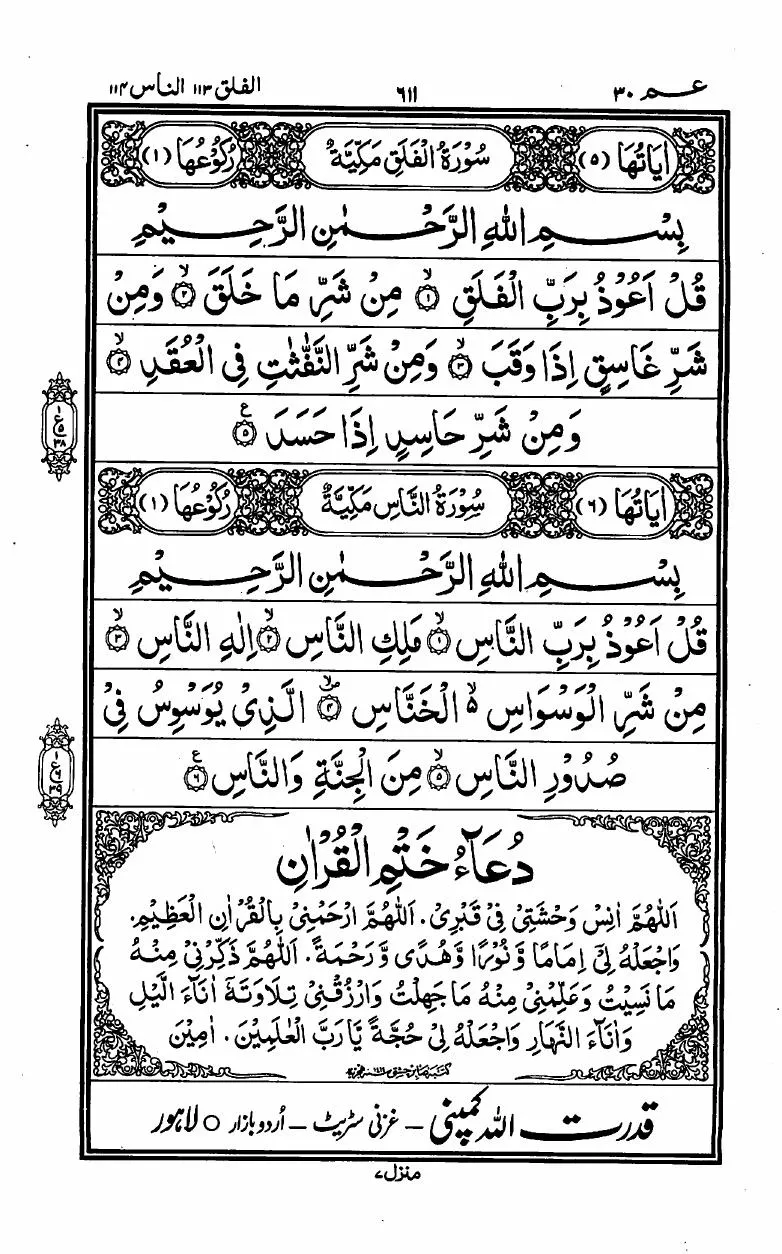 عـــم ۳۰
۶۱۱
الفلق ۱۱۳ الناس ۱۱۴
اٰيَاتُهَا (۵)
سُوْرَةُ الْفَلَقِ مَكِّيَّةٌ
رُكُوْعُهَا (۱)
بِسْمِ اللهِ الرَّحْمٰنِ الرَّحِيْمِ
قُلْ اَعُوْذُ بِرَبِّ الْفَلَقِ ۙ‏۱ مِنْ شَرِّ مَا خَلَقَ ۙ‏۲ وَمِنْ
شَرِّ غَاسِقٍ اِذَا وَقَبَ ۙ‏۳ وَمِنْ شَرِّ النَّفّٰثٰتِ فِى الْعُقَدِ ۙ‏۴
وَمِنْ شَرِّ حَاسِدٍ اِذَا حَسَدَ ۵ ع
۱
ع ۵
۳۸
اٰيَاتُهَا (۶)
سُوْرَةُ النَّاسِ مَكِّيَّةٌ
رُكُوْعُهَا (۱)
بِسْمِ اللهِ الرَّحْمٰنِ الرَّحِيْمِ
قُلْ اَعُوْذُ بِرَبِّ النَّاسِ ۙ‏۱ مَلِكِ النَّاسِ ۙ‏۲ اِلٰهِ النَّاسِ ۙ‏۳
مِنْ شَرِّ الْوَسْوَاسِ ۙ۵ الْخَنَّاسِ ۴ الَّذِىْ يُوَسْوِسُ فِىْ
صُدُوْرِ النَّاسِ ۙ‏۵ مِنَ الْجِنَّةِ وَالنَّاسِ ۶ ع
۱
ع ۶
۳۹
دُعَآءُ خَتْمِ الْقُرْاٰنِ
اَللّٰهُمَّ اٰنِسْ وَحْشَتِىْ فِىْ قَبْرِىْ. اَللّٰهُمَّ ارْحَمْنِىْ بِالْقُرْاٰنِ الْعَظِيْمِ.
وَاجْعَلْهُ لِىْٓ اِمَامًا وَّنُوْرًا وَّهُدًى وَّرَحْمَةً. اَللّٰهُمَّ ذَكِّرْنِىْ مِنْهُ
مَا نَسِيْتُ وَعَلِّمْنِىْ مِنْهُ مَا جَهِلْتُ وَارْزُقْنِىْ تِلَاوَتَهٗٓ اٰنَآءَ الَّيْلِ
وَاٰنَآءَ النَّهَارِ وَاجْعَلْهُ لِىْ حُجَّةً يَّا رَبَّ الْعٰلَمِيْنَ. اٰمِيْنَ
قدرت اللہ کمپنی – غزنی سٹریٹ – اُردو بازار ○ لاہور
منزل ۷